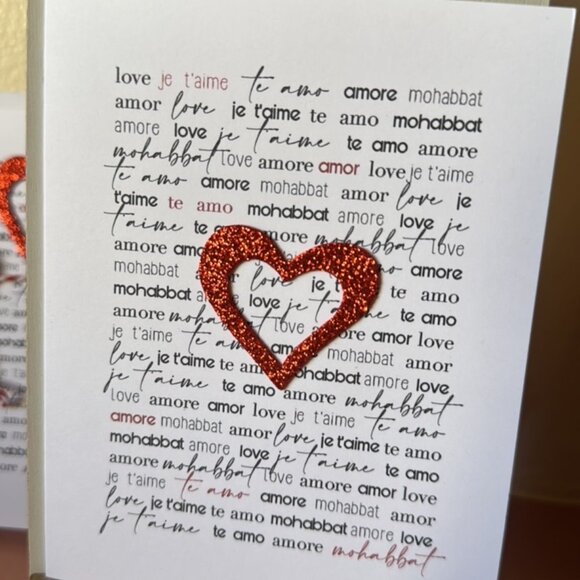 love je t'aime te amo amore mohabbat
amor love je t'aime te amo mohabbat
amore love je t'aime te amo amore
mohabbat love amore amor love je t'aime
te amo amore mohabbat amor love je
t'aime te amo mohabbat amore love je
t'aime te more mohabbat love
amore amo amore
mohabbat love je te amo
mohabbat love je t'aime te amo
amore love amore amor love
je t'aime te mohabbat amor
love je t'aime te am ohabbat amore love
je t'aime te amo amore mohabbat
love amore amor love je t'aime te amo
amore mohabbat amor love je t'aime te amo
mohabbat amore love je t'aime te amo
amore mohabbat love amore amor love
je t'aime te amo amore mohabbat amor
love je t'aime te amo mohabbat amore love
je t'aime te amo amore mohabbat